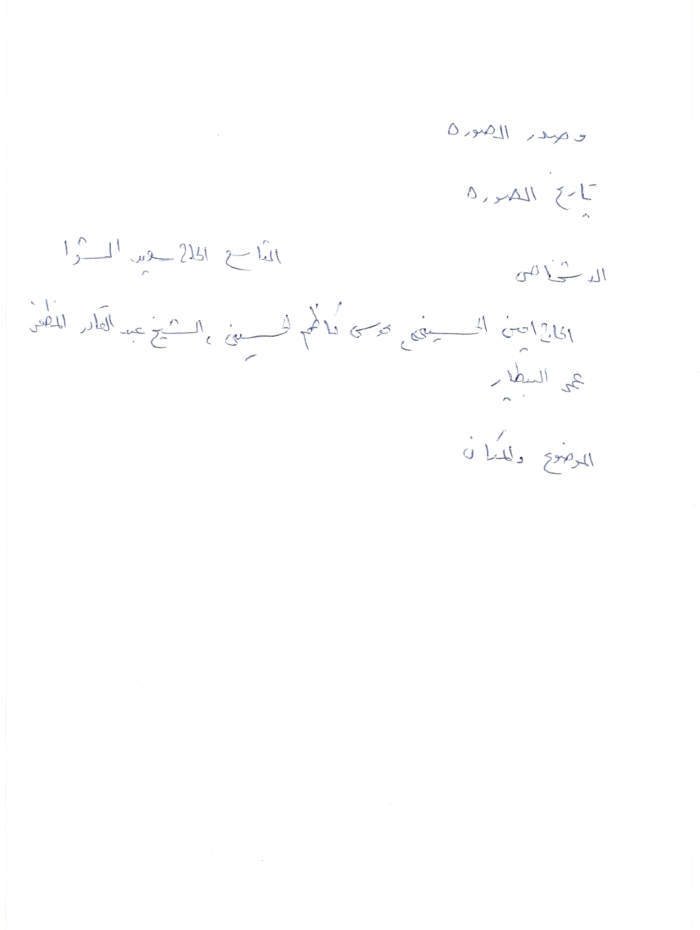 مصدر الصوره
تاريخ الصوره
الاشخاص
التاسع الحاج سعيد الشوا
الحاج امين الحسيني، موسى كاظم الحسيني، الشيخ عبد القادر المظفر
عمر البيطار
الموضوع والمكان